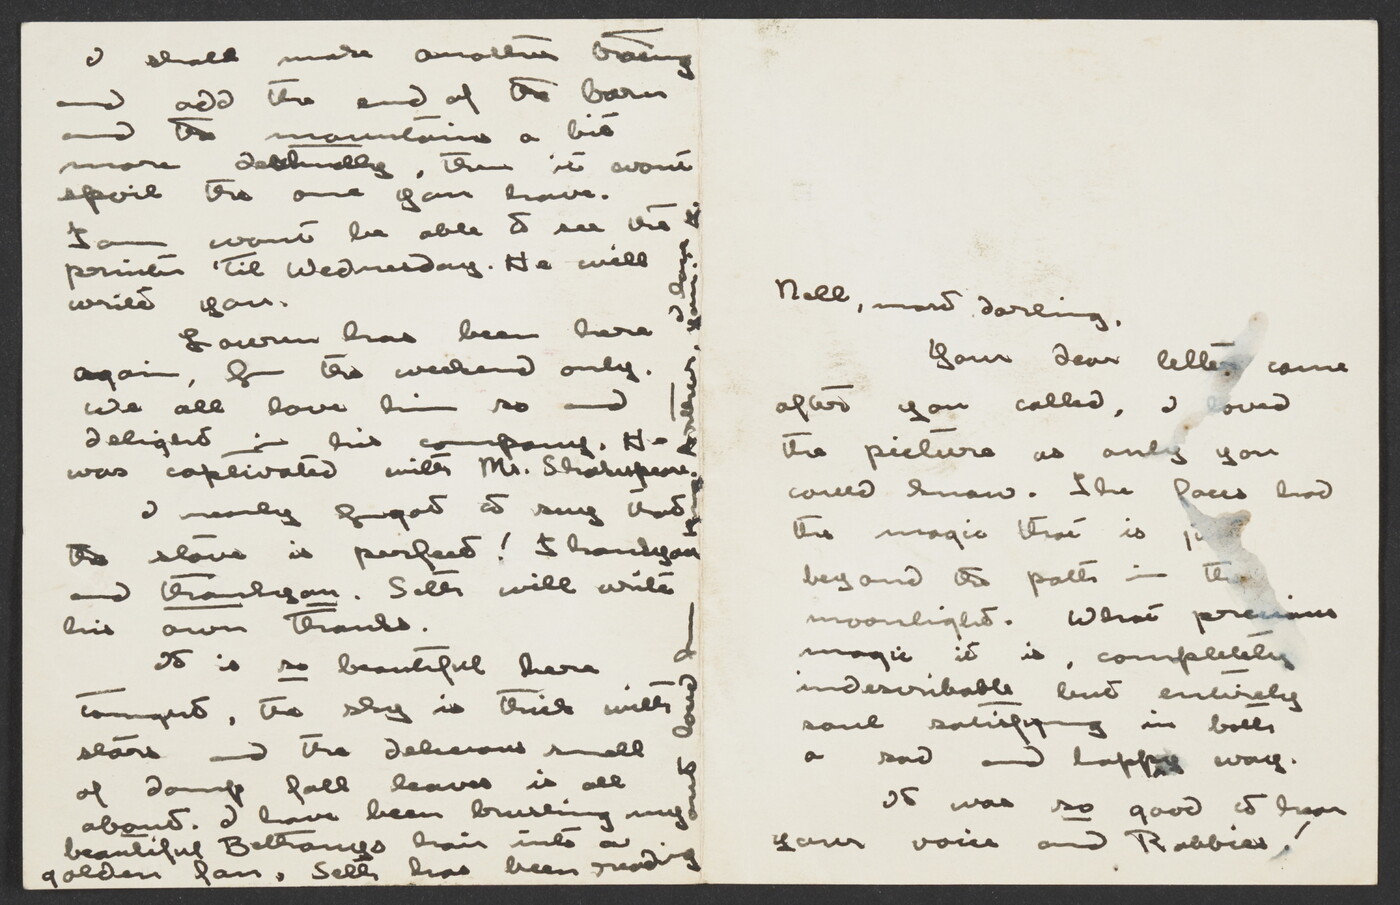 Nell, most darling,
Your dear letter came
after you called, I loved
the picture as only you
could know. The faces had
the magic that is just
beyond the path in the
moonlight. What precious
magic it is, completely
indescribable but entirely
soul satisfying in both
a sad and happy way.
It was so good to hear
your voice and Robbies!
I shall make another tracing
and add the end of the barn
and the mountains a bit
more delicately, then it wont
spoil the one you have.
Tom wont be able to see the
printer 'til Wednesday. He will
write you.
has been here
again, for the weekend only.
We all love him so and
delight in his company. He
was captivated with Mr. Shakespeare.
I nearly forgot to say that
the stove is perfect! Thankyou
and thankyou. Seth will write
his own thanks.
It is so beautiful here
tonight, the sky is thick with
stars and the delicious smell
of damp fall leaves is all
about. I have been brushing my
beautiful Bethanys hair into a
golden fan. Seth has been reading
out loud from
King Arthur. I love
you.